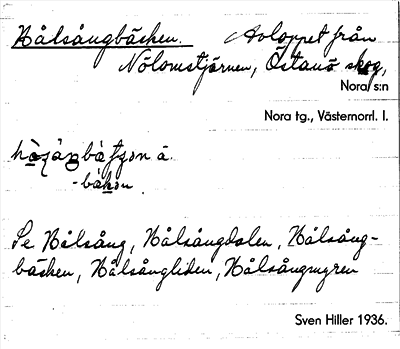 Bålsångbäcken. Avloppet från
Nolomstjärnen, Östanö skog,
Nora s:n
Nora tg., Västernorrl. l.
-båkǝn
Se Bålsång, Bålsångdalen, Bålsång-
bäcken, Bålsångliden, Bålsångmyren
Sven Hiller 1936.